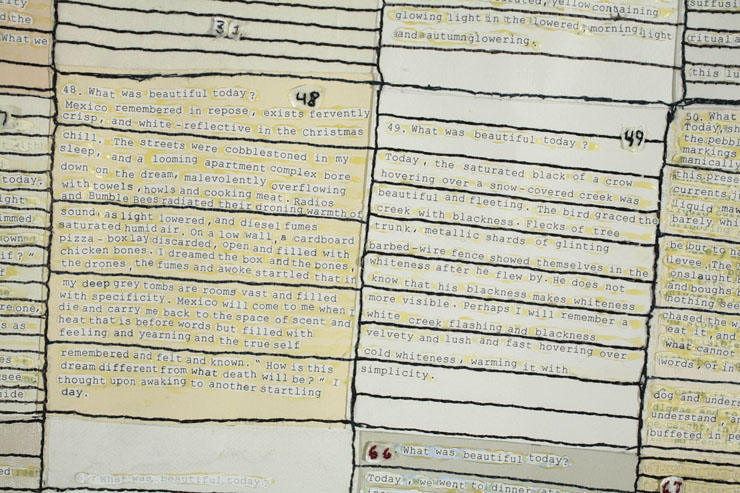 31
glowing light in the lowered, morning light
and autumn glowering.
48. What was beautiful today?
48
Mexico remembered in repose, exists fervently
crisp, and white-reflective in the Christmas
chill. The streets were cobblestoned in my
sleep, and a looming apartment complex bore
down on the dream, malevolently overflowing
with towels, howls and cooking meat. Radios
and Bumble Bees radiated their droning warmth of
sound, as light lowered, and diesel fumes
saturated humid air. On a low wall, a cardboard
pizza-box lay discarded, open and filled with
chicken bones. I dreamed the box and the bones,
the drones, the fumes and awoke startled that in
my deep grey tombs are rooms vast and filled
with specificity. Mexico will come to me when I
die and carry me back to the space of scent and
heat that is before words but filled with
feeling and yearning and the true self
remembered and felt and known. "How is this
dream different from what death will be?" I
thought upon awaking to another startling
day.
What was beautiful today?
49. What was beautiful today?
49
Today, the saturated black of a crow
hovering over a snow-covered creek was
beautiful and fleeting. The bird graced the
creek with blackness. Flecks of tree
trunk, metallic shards of glinting
barbed-wire fence showed themselves in the
whiteness after he flew by. He does not
know that his blackness makes whiteness
more visible. Perhaps I will remember a
white creek flashing and blackness
velvety and lush and fast hovering over
cold whiteness, warming it with
simplicity.
66. What was beautiful today?
Today, we went to dinner at
50. What
Today, sh
the pebbl
markings
manically
this pres
currents,
liquid maw
barely whi
be but to
levee. The
onslaught
and bough
nothing see
chased the
eat it, and
what cannot
words, or in
dog and unders
understand
buffeted in pe
67
What we
today.